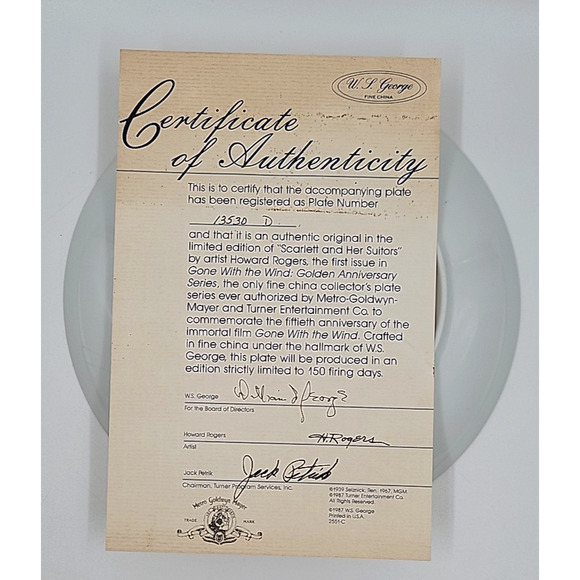 W. S. George
FINE CHINA
Certificate
of Authenticity
This is to certify that the accompanying plate
has been registered as Plate Number
13530 D
and that it is an authentic original in the
limited edition of "Scarlett and Her Suitors"
by artist Howard Rogers, the first issue in
Gone With the Wind: Golden Anniversary
Series, the only fine china collector's plate
series ever authorized by Metro-Goldwyn-
Mayer and Turner Entertainment Co. to
commemorate the fiftieth anniversary of the
immortal film Gone With the Wind. Crafted
in fine china under the hallmark of W.S.
George, this plate will be produced in an
edition strictly limited to 150 firing days.
W.S. George William J George
For the Board of Directors
Howard Rogers H. Rogers
Artist
Jack Petrik Jack Petrik
Chairman, Turner Program Services, Inc.
Metro Goldwyn Mayer
TRADE MARK
©1939 Selznick, Ren. 1967, MGM
©1987 Turner Entertainment Co.
All Rights Reserved.
©1987 W.S. George
Printed in U.S.A.
2501-C